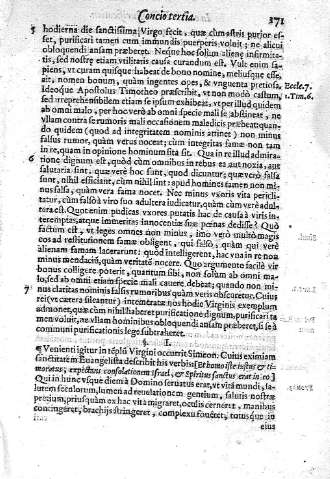 Concio tertia.
271
5 hodierna die sanctissima Virgo fecit, quæ cum astris purior es-
set, purificari tamen cum immundis puerperis voluit; ne alicui
obloquendi ansam præberet. Neque hoc solum alienæ infirmita-
tis, sed nostræ etiam vtilitatis causa curandum est. Vule enim sa-
piens, vt curam quisque habeat de bono nomine, meliusque esse,
ait, nomen bonum, quàm ingentes opes, & vnguenta pretiosa.
Eccle. 7.
Ideoque Apostolus Timotheo præscribit, vt non modò castum,
1. Tim. 6.
sed irreprehensibilem etiam se ipsum exhibeat, vt per illud quidem
ab omni malo, per hoc verò ab omni specie mali se abstineat, ne
vllam contra se rumoris mali occasionem maledicis præbeat: quan-
do quidem (quod ad integritatem nominis attinet) non minus
falsus rumor, quàm verus nocet; cùm integritas famæ non tam
in re, quam in opinione hominum sita sit. Qua in re illud admira-
6 tione dignum est, quòd cùm omnibus in rebus ea aut noxia, aut
salutaria sint, quæ verè hoc sunt, quod dicuntur; quæ verò falsa
sunt, nihil efficiant, cùm nihil sint: apud homines tamen non mi-
nus falsa, quàm vera fama nocet. Nec minus vxoris vita pericli-
tatur, cùm falsò à viro suo adultera iudicatur, quàm cùm verè adul-
tera est. Quot enim pudicas vxores putatis hac de causa à viris in-
teremptas, atque immeritas innocentiæ suæ pœnas dedisse? Quo
factum est, vt leges omnes non minus, imò verò multò magis
eos ad restitutionem famæ obligent, qui falsò, quàm qui verè
alienam famam lacerarunt: quòd intelligerent, hac vna in re non
minus mendaciis, quàm veritate nocere. Quo argumento facilè vir
bonus colligere poterit, quantum sibi, non solùm ab omni ma-
lo, sed ab omni etiam specie mali cauere debeat; quando non mi-
7 nus claritas nominis falsis rumoribus quàm veris obscuretur. Cuius
rei (vt cætera sileantur) intemeratæ nos hodie Virginis exemplum
admonet, quæ cùm nihil haberet purificatione dignum, purificari ta-
men voluit, ne vllam hominibus obloquendi ansam præberet, si se à
communi purificationis lege subtraheret.
§. I.
¶ Venienti igitur in templũ Virgini occurrit Simeon. Cuius eximiam
sanctitatem Euangelista describit his verbis [Et homo iste iustus & ti-
moratus; expectans consolationem Israel, & Spiritus sanctus erat in eo]
Qui in hunc vsque diem à Domino seruatus erat, vt vitã mundi, sa-
lutem sæculorum, lumen ad reuelationem gentium, salutis nostræ
precium, priusquàm ex hac vita migraret, oculis cerneret, manibus
contingeret, brachijs stringeret, complexu foueret, totusque in
eius